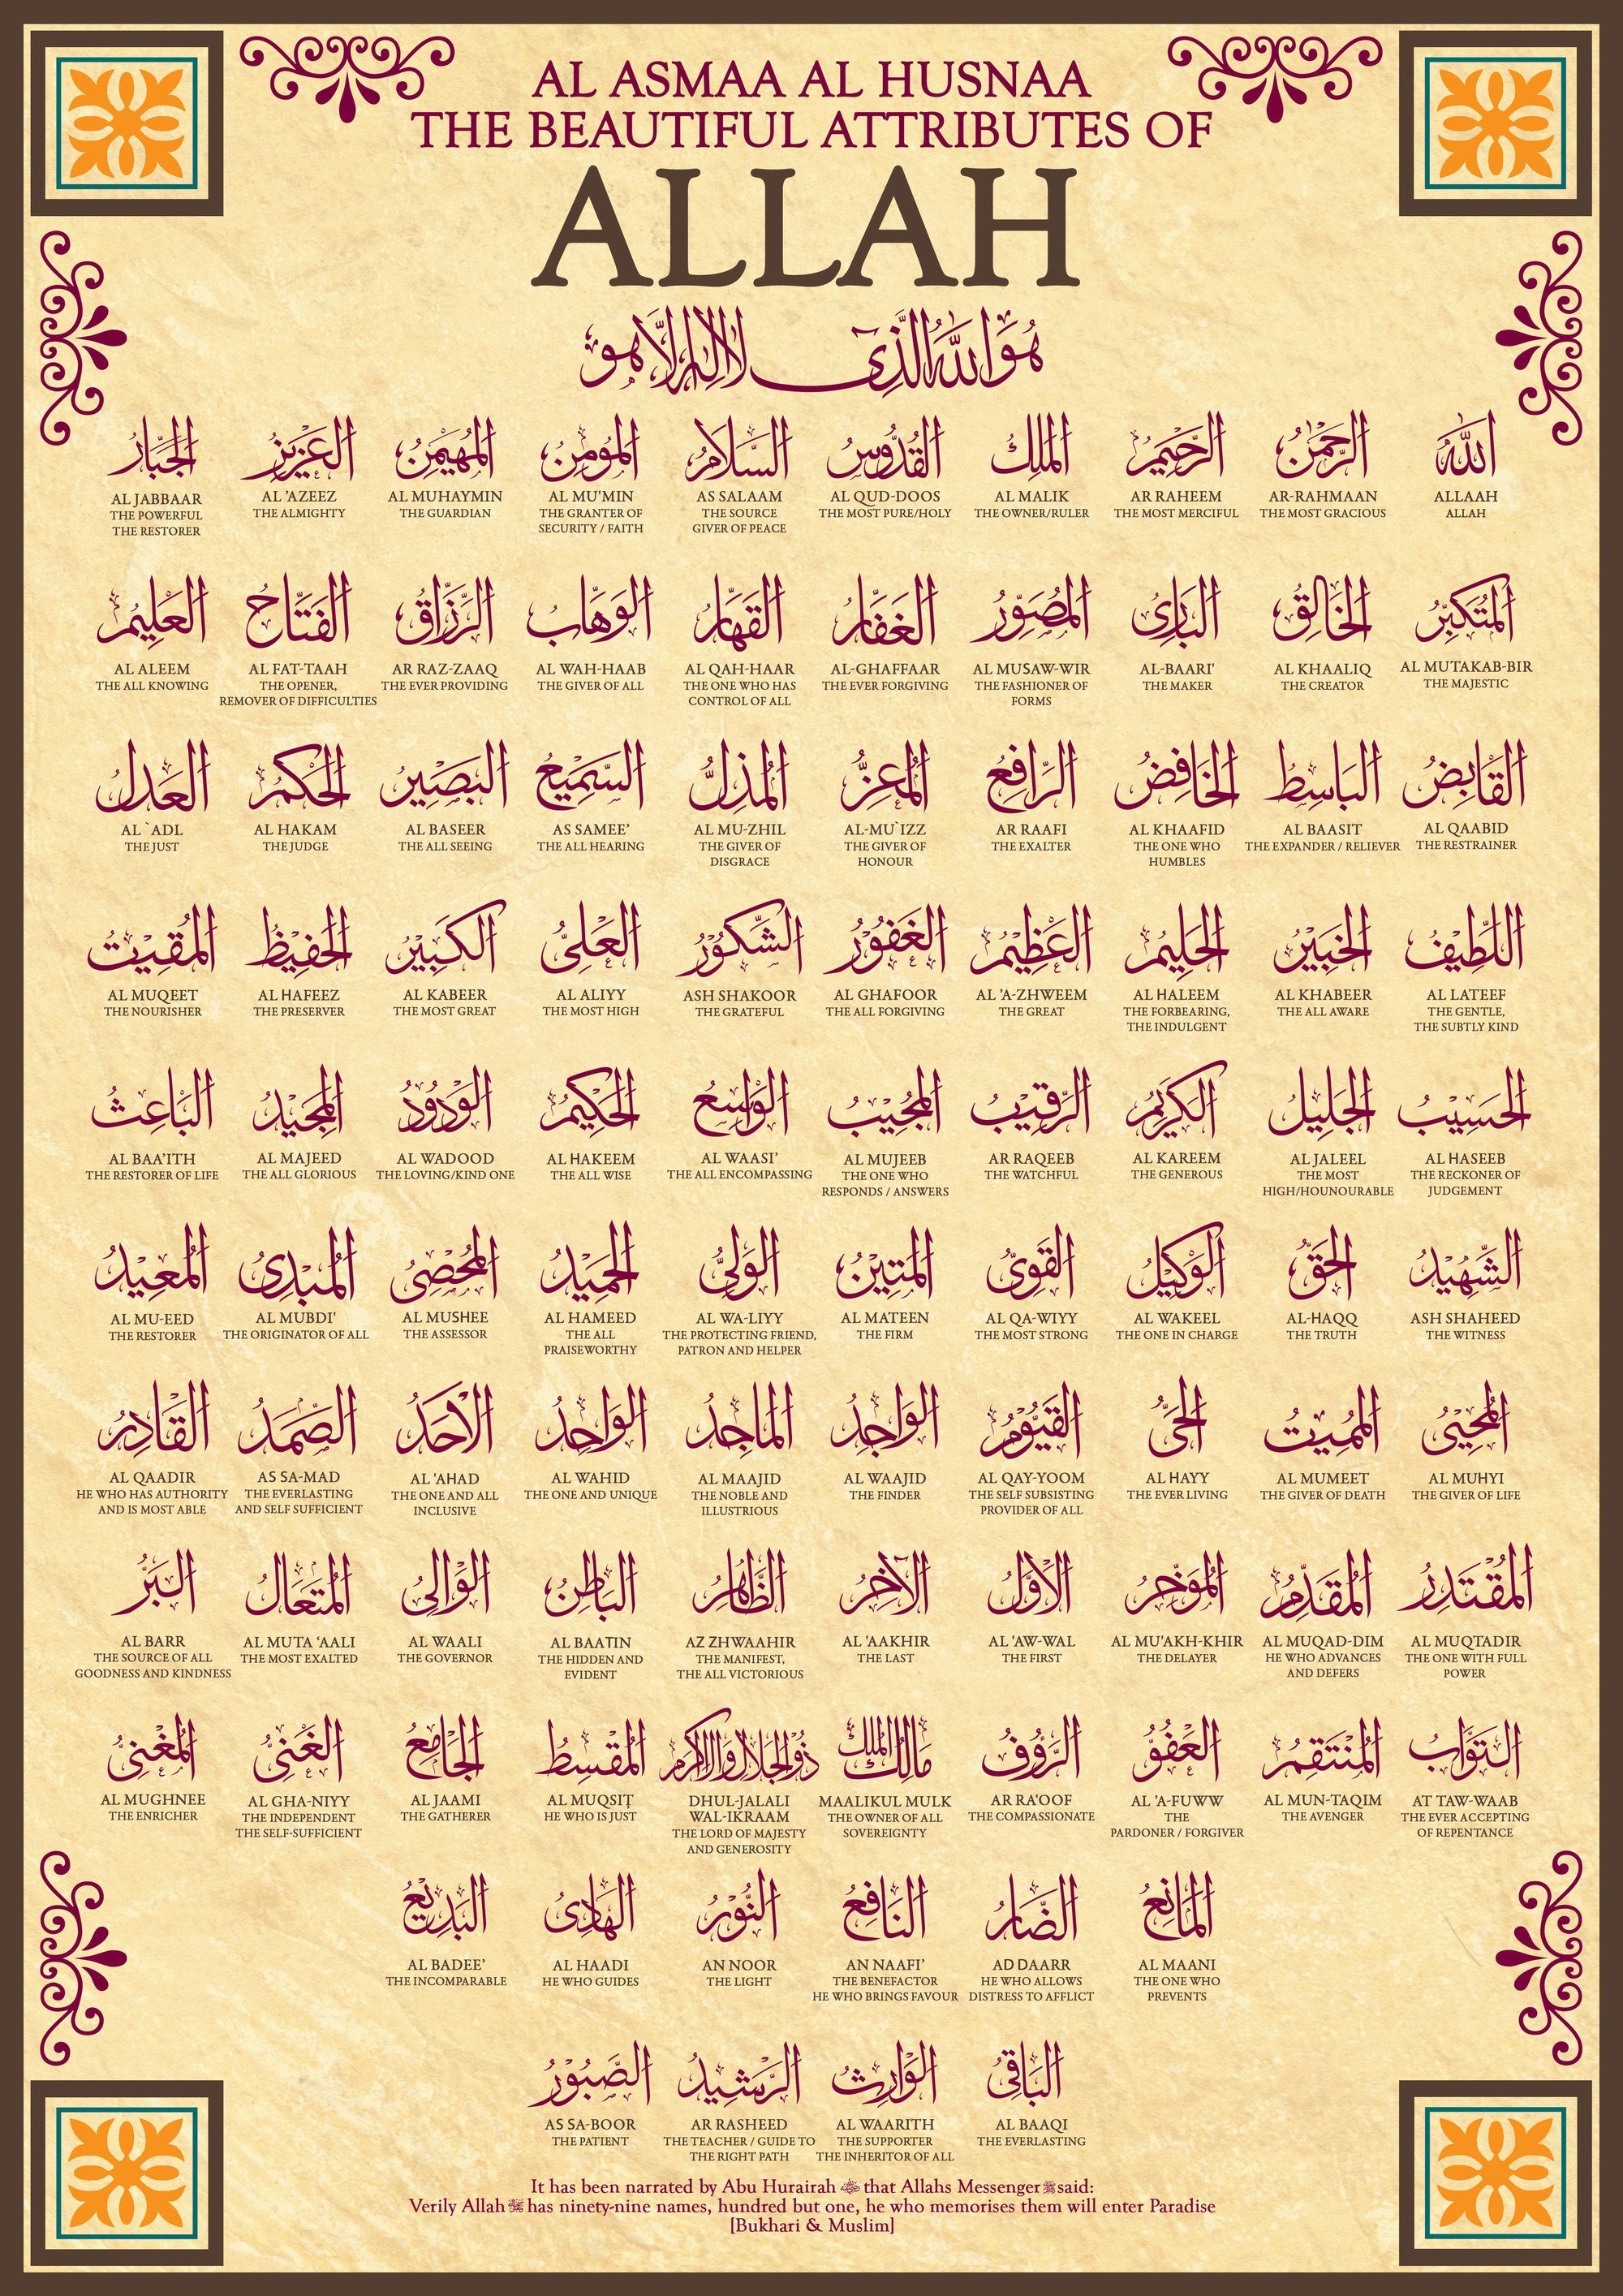 AL ASMAA AL HUSNAA
THE BEAUTIFUL ATTRIBUTES OF
ALLAH
هُوَ اللهُ الَّذِي لَا إِلٰهَ إِلَّا هُوَ
اللهُ
ALLAAH
ALLAH
الرَّحْمٰنُ
AR-RAHMAAN
THE MOST GRACIOUS
الرَّحِيْمُ
AR RAHEEM
THE MOST MERCIFUL
المَلِكُ
AL MALIK
THE OWNER/RULER
القُدُّوسُ
AL QUD-DOOS
THE MOST PURE/HOLY
السَّلَامُ
AS SALAAM
THE SOURCE
GIVER OF PEACE
المُؤمِنُ
AL MU'MIN
THE GRANTER OF
SECURITY / FAITH
المُهَيْمِنُ
AL MUHAYMIN
THE GUARDIAN
العَزِيْزُ
AL 'AZEEZ
THE ALMIGHTY
الجَبَّارُ
AL JABBAAR
THE POWERFUL
THE RESTORER
المُتَكَبِّرُ
AL MUTAKAB-BIR
THE MAJESTIC
الخَالِقُ
AL KHAALIQ
THE CREATOR
البَارِئُ
AL-BAARI'
THE MAKER
المُصَوِّرُ
AL MUSAW-WIR
THE FASHIONER OF
FORMS
الغَفَّارُ
AL-GHAFFAAR
THE EVER FORGIVING
القَهَّارُ
AL QAH-HAAR
THE ONE WHO HAS
CONTROL OF ALL
الوَهَّابُ
AL WAH-HAAB
THE GIVER OF ALL
الرَّزَّاقُ
AR RAZ-ZAAQ
THE EVER PROVIDING
الفَتَّاحُ
AL FAT-TAAH
THE OPENER,
REMOVER OF DIFFICULTIES
العَلِيْمُ
AL ALEEM
THE ALL KNOWING
القَابِضُ
AL QAABID
THE RESTRAINER
البَاسِطُ
AL BAASIT
THE EXPANDER / RELIEVER
الخَافِضُ
AL KHAAFID
THE ONE WHO
HUMBLES
الرَّافِعُ
AR RAAFI
THE EXALTER
المُعِزُّ
AL-MU`IZZ
THE GIVER OF
HONOUR
المُذِلُّ
AL MU-ZHIL
THE GIVER OF
DISGRACE
السَّمِيْعُ
AS SAMEE’
THE ALL HEARING
البَصِيْرُ
AL BASEER
THE ALL SEEING
الحَكَمُ
AL HAKAM
THE JUDGE
العَدلُ
AL `ADL
THE JUST
اللَّطِيْفُ
AL LATEEF
THE GENTLE,
THE SUBTLY KIND
الخَبِيْرُ
AL KHABEER
THE ALL AWARE
الحَلِيْمُ
AL HALEEM
THE FORBEARING,
THE INDULGENT
العَظِيْمُ
AL ’A-ZHWEEM
THE GREAT
الغَفُوْرُ
AL GHAFOOR
THE ALL FORGIVING
الشَّكُوْرُ
ASH SHAKOOR
THE GRATEFUL
العَلِىُّ
AL ALIYY
THE MOST HIGH
الكَبِيْرُ
AL KABEER
THE MOST GREAT
الحَفِيْظُ
AL HAFEEZ
THE PRESERVER
المُقِيْتُ
AL MUQEET
THE NOURISHER
الحَسِيْبُ
AL HASEEB
THE RECKONER OF
JUDGEMENT
الجَلِيْلُ
AL JALEEL
THE MOST
HIGH/HOUNOURABLE
الكَرِيْمُ
AL KAREEM
THE GENEROUS
الرَّقِيْبُ
AR RAQEEB
THE WATCHFUL
المُجِيْبُ
AL MUJEEB
THE ONE WHO
RESPONDS / ANSWERS
الوَاسِعُ
AL WAASI’
THE ALL ENCOMPASSING
الحَكِيْمُ
AL HAKEEM
THE ALL WISE
الوَدُوْدُ
AL WADOOD
THE LOVING/KIND ONE
المَجِيْدُ
AL MAJEED
THE ALL GLORIOUS
البَاعِثُ
AL BAA’ITH
THE RESTORER OF LIFE
الشَّهِيْدُ
ASH SHAHEED
THE WITNESS
الحَقُّ
AL-HAQQ
THE TRUTH
الوَكِيْلُ
AL WAKEEL
THE ONE IN CHARGE
القَوِىُّ
AL QA-WIYY
THE MOST STRONG
المَتِيْنُ
AL MATEEN
THE FIRM
الوَلِىُّ
AL WA-LIYY
THE PROTECTING FRIEND,
PATRON AND HELPER
الحَمِيْدُ
AL HAMEED
THE ALL
PRAISEWORTHY
المُحْصِى
AL MUSHEE
THE ASSESSOR
المُبْدِئُ
AL MUBDI'
THE ORIGINATOR OF ALL
المُعِيْدُ
AL MU-EED
THE RESTORER
المُحْيِىُ
AL MUHYI
THE GIVER OF LIFE
المُمِيْتُ
AL MUMEET
THE GIVER OF DEATH
الحَىُّ
AL HAYY
THE EVER LIVING
القَيُّوْمُ
AL QAY-YOOM
THE SELF SUBSISTING
PROVIDER OF ALL
الوَاجِدُ
AL WAAJID
THE FINDER
المَاجِدُ
AL MAAJID
THE NOBLE AND
ILLUSTRIOUS
الوَاحِدُ
AL WAHID
THE ONE AND UNIQUE
الأَحَدُ
AL 'AHAD
THE ONE AND ALL
INCLUSIVE
الصَّمَدُ
AS SA-MAD
THE EVERLASTING
AND SELF SUFFICIENT
القَادِرُ
AL QAADIR
HE WHO HAS AUTHORITY
AND IS MOST ABLE
المُقْتَدِرُ
AL MUQTADIR
THE ONE WITH FULL
POWER
المُقَدِّمُ
AL MUQAD-DIM
HE WHO ADVANCES
AND DEFERS
المُؤَخِّرُ
AL MU'AKH-KHIR
THE DELAYER
الأَوَّلُ
AL 'AW-WAL
THE FIRST
الآخِرُ
AL 'AAKHIR
THE LAST
الظَّاهِرُ
AZ ZHWAAHIR
THE MANIFEST,
THE ALL VICTORIOUS
البَاطِنُ
AL BAATIN
THE HIDDEN AND
EVIDENT
الوَالِى
AL WAALI
THE GOVERNOR
المُتَعَالُ
AL MUTA ‘AALI
THE MOST EXALTED
البَرُّ
AL BARR
THE SOURCE OF ALL
GOODNESS AND KINDNESS
التَّوَّابُ
AT TAW-WAAB
THE EVER ACCEPTING
OF REPENTANCE
المُنْتَقِمُ
AL MUN-TAQIM
THE AVENGER
العَفُوُّ
AL 'A-FUWW
THE
PARDONER / FORGIVER
الرَّؤُوْفُ
AR RA'OOF
THE COMPASSIONATE
مَالِكُ المُلْكِ
MAALIKUL MULK
THE OWNER OF ALL
SOVEREIGNTY
ذُو الجَلَالِ وَالاِكْرَامِ
DHUL-JALALI
WAL-IKRAAM
THE LORD OF MAJESTY
AND GENEROSITY
المُقْسِطُ
AL MUQSIT
HE WHO IS JUST
الجَامِعُ
AL JAAMI
THE GATHERER
الغَنِىُّ
AL GHA-NIYY
THE INDEPENDENT
THE SELF-SUFFICIENT
المُغْنِىُ
AL MUGHNEE
THE ENRICHER
المَانِعُ
AL MAANI
THE ONE WHO
PREVENTS
الضَّارُّ
AD DAARR
HE WHO ALLOWS
DISTRESS TO AFFLICT
النَّافِعُ
AN NAAFI’
THE BENEFACTOR
HE WHO BRINGS FAVOUR
النُّوْرُ
AN NOOR
THE LIGHT
الهَادِى
AL HAADI
HE WHO GUIDES
البَدِيْعُ
AL BADEE’
THE INCOMPARABLE
البَاقِى
AL BAAQI
THE EVERLASTING
الوَارِثُ
AL WAARITH
THE SUPPORTER
THE INHERITOR OF ALL
الرَّشِيْدُ
AR RASHEED
THE TEACHER / GUIDE TO
THE RIGHT PATH
الصَّبُوْرُ
AS SA-BOOR
THE PATIENT
It has been narrated by Abu Hurairah that Allahs Messenger ﷺ said:
Verily Allah has ninety-nine names, hundred but one, he who memorises them will enter Paradise
[Bukhari & Muslim]